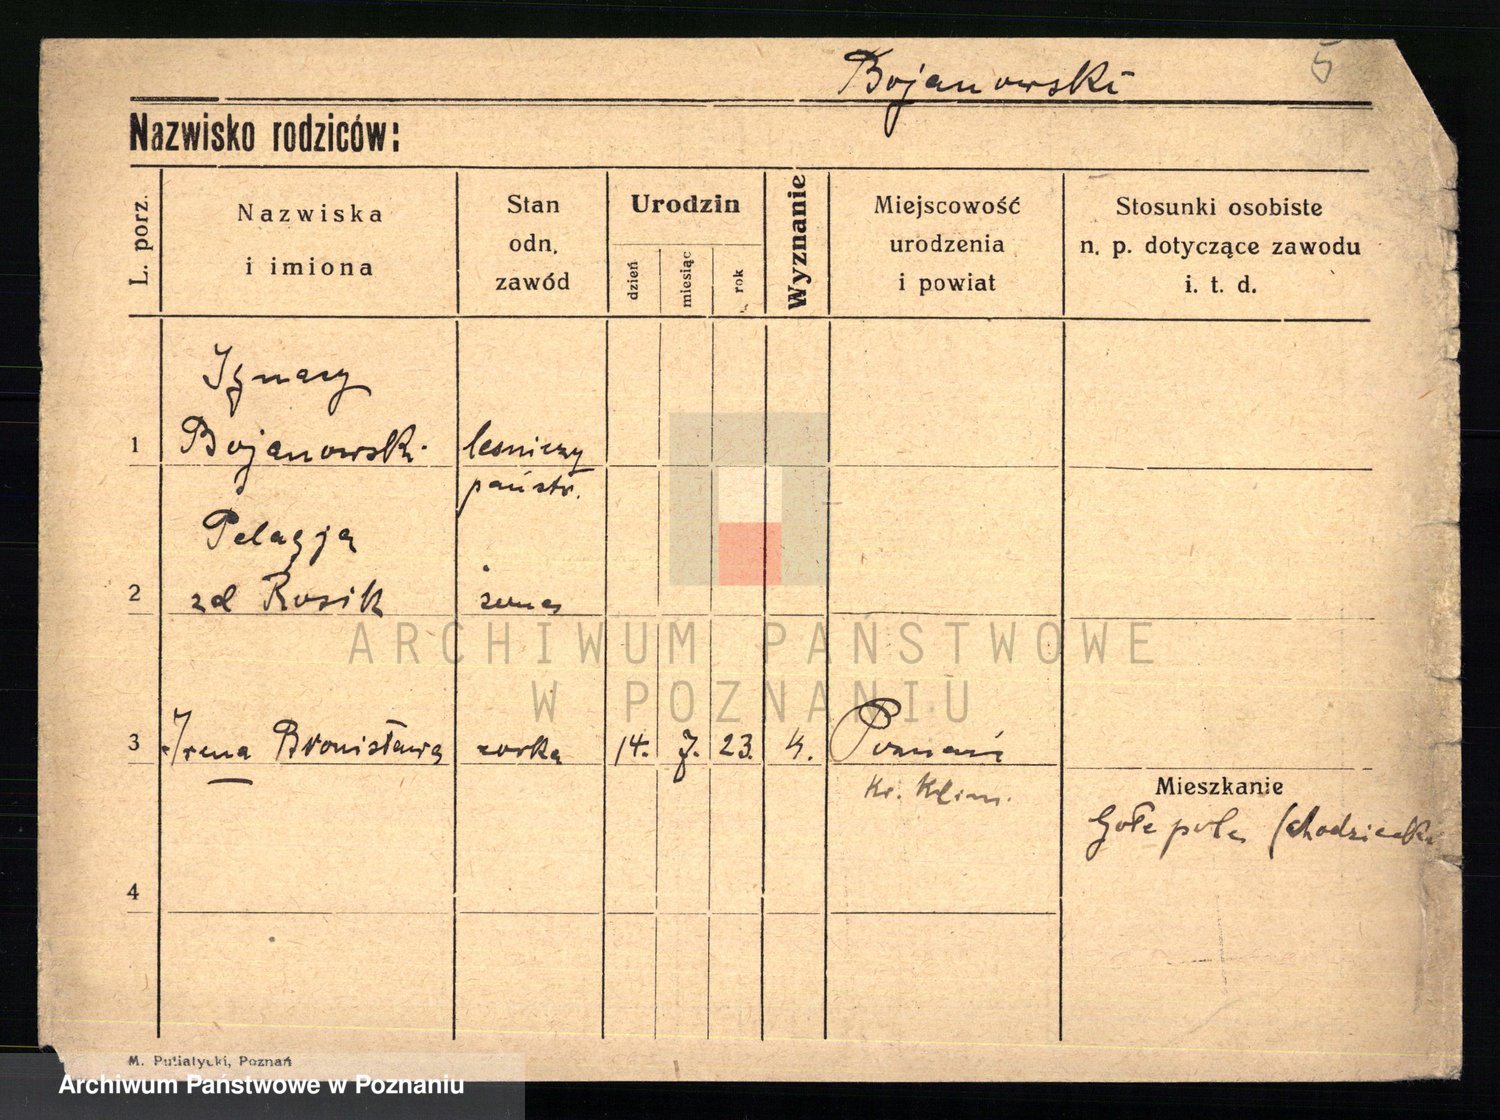 Bojanowski 5
Nazwisko rodziców:
L. porz.
Nazwiska
i imiona
Stan
odn,
zawód
Urodzin
dzień
miesiąc
rok
Wyznanie
Miejscowość
urodzenia
i powiat
Stosunki osobiste
n. p. dotyczące zawodu
i. t. d.
Ignacy
1 Bojanowski leśniczy
państw.
Pelagja
2 zd Rosik żona
ARCHIWUM PAŃSTWOWE
W POZNANIU
3 Irena Bronisława córka 14. 7. 23. k. Poznań
Kr. Klim.
Mieszkanie
Gołe pole (chodzieski
4
M. Putiatycki, Poznań
Archiwum Państwowe w Poznaniu